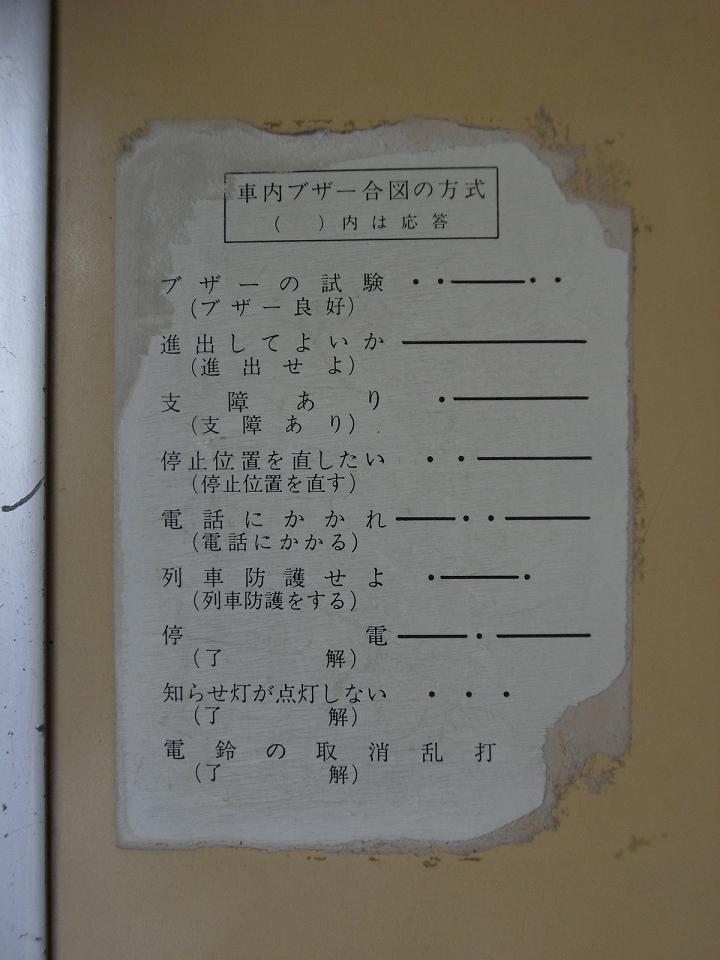 車内ブザー合図の方式
(　)内は応答
ブザーの試験 ・・―――・・
(ブザー良好)
進出してよいか ――――――
(進出せよ)
支障あり ・―――
(支障あり)
停止位置を直したい ・・―――
(停止位置を直す)
電話にかかれ ―――・・―――
(電話にかかる)
列車防護せよ ・―――・
(列車防護をする)
停電 ―――・―――
(了解)
知らせ灯が点灯しない ・・・
(了解)
電鈴の取消乱打
(了解)